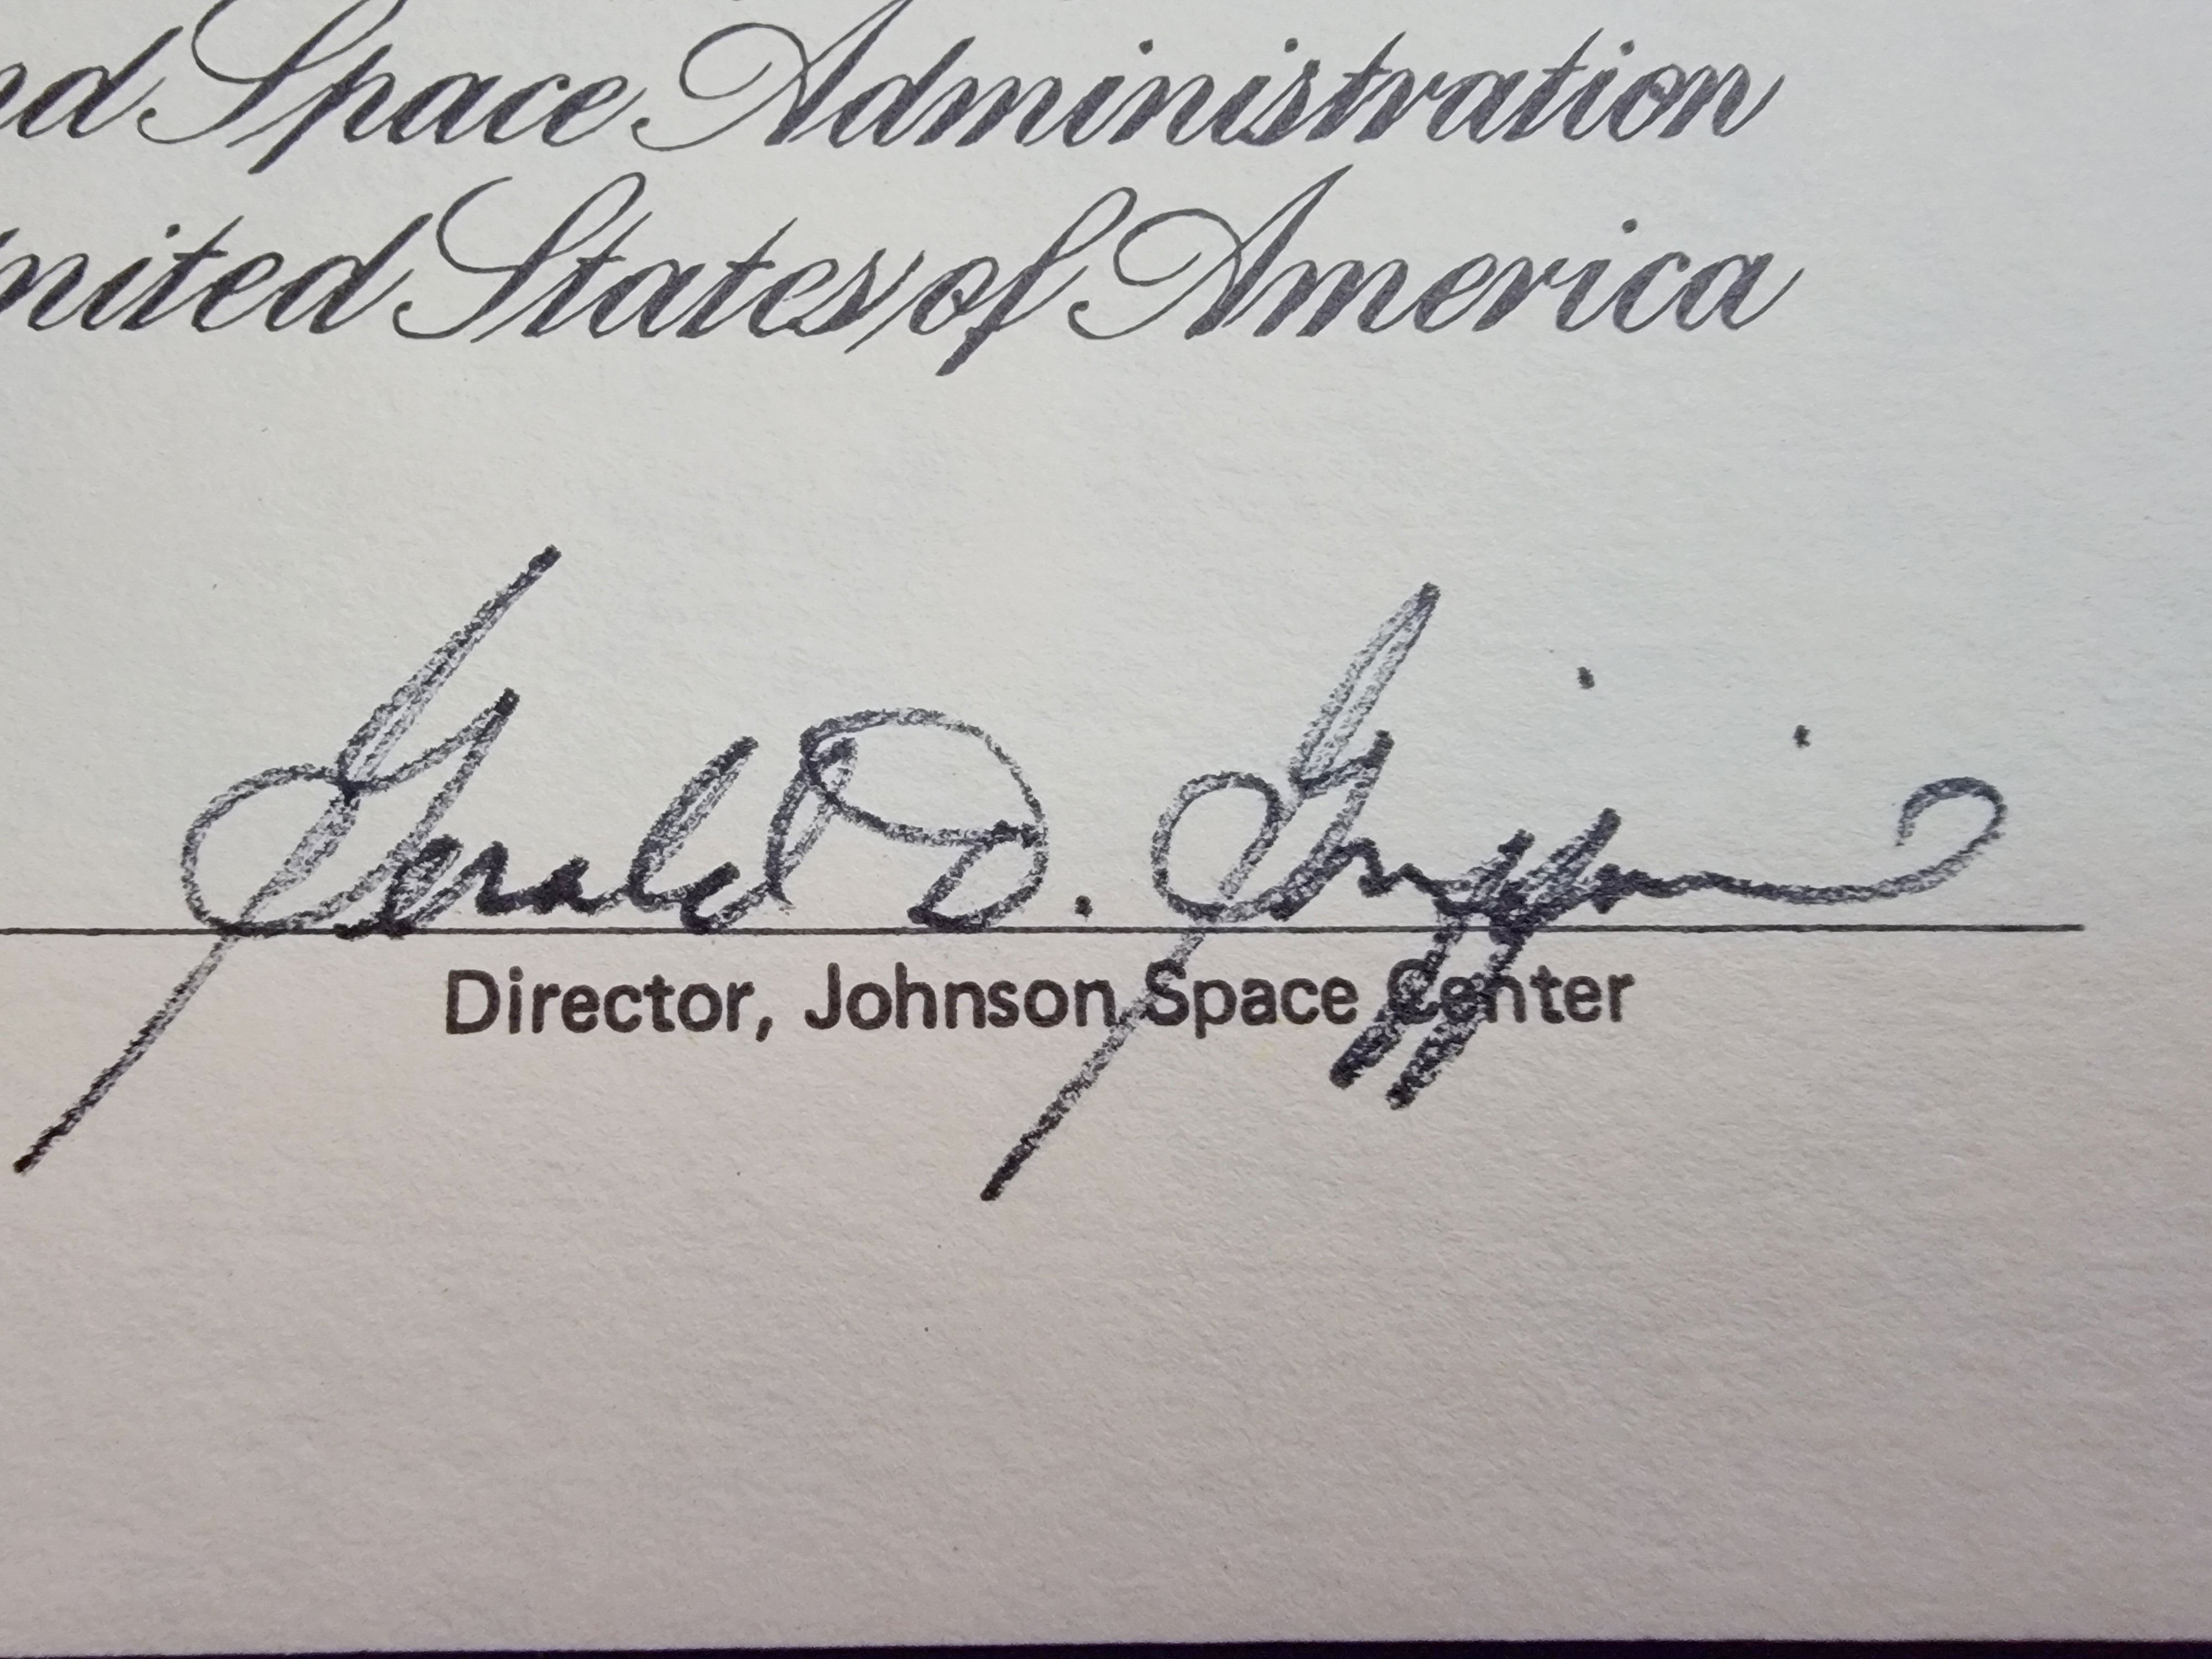 nd Space Administration
United States of America
Gerald D. Griffin
Director, Johnson Space Center